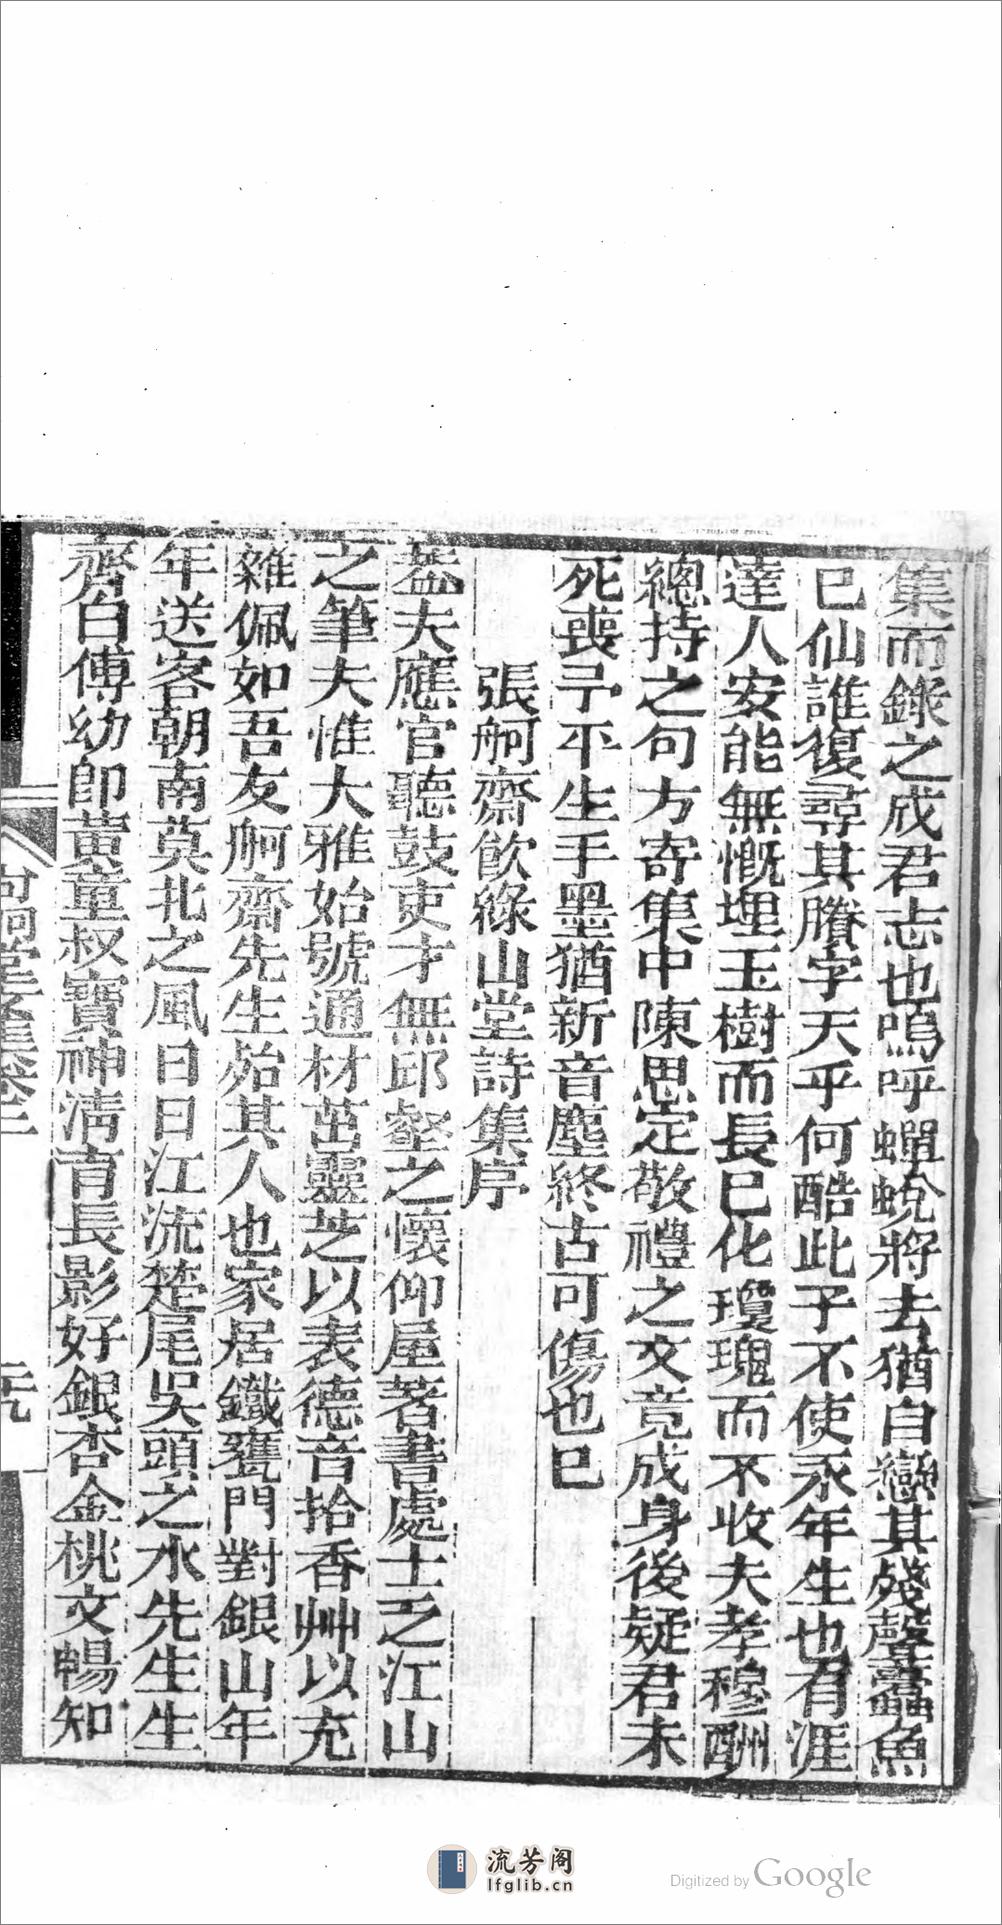 集而錄之成君志也嗚呼蟬蛻將去猶自戀其殘聲蠹魚
已仙誰復尋其賸字天乎何酷此予不使永年生也有涯
達人安能無慨埋玉樹而長已化瓊瑰而不收夫孝穆酬
總持之句方寄集中陳思定敬禮之文竟成身後疑君未
死喪予平生手墨猶新音塵終古可傷也已
張舸齋飲綠山堂詩集序
蓋夫應官聽鼓吏才無邱壑之懷仰屋著書處士乏江山
之筆夫惟大雅始號通材茁靈芝以表德音拾香艸以充
雜佩如吾友舸齋先生殆其人也家居鐵甕門對銀山年
年送客朝南莫北之風日日江流楚尾吳頭之水先生生
齊白傅幼即黃童叔寶神清有長影好銀杏金桃文暢知
流芳阁
lfglib.cn
Digitized by Google